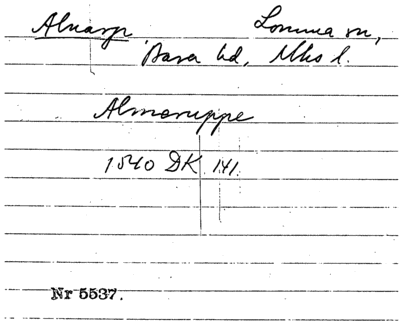 Alnarp Lomma sn,
Bara hd, Mhs l.
Almoruppe
1540 DK 141.
Nr 5537.